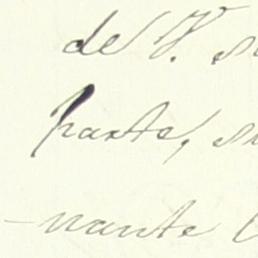 de V. s
parte, su
-nante